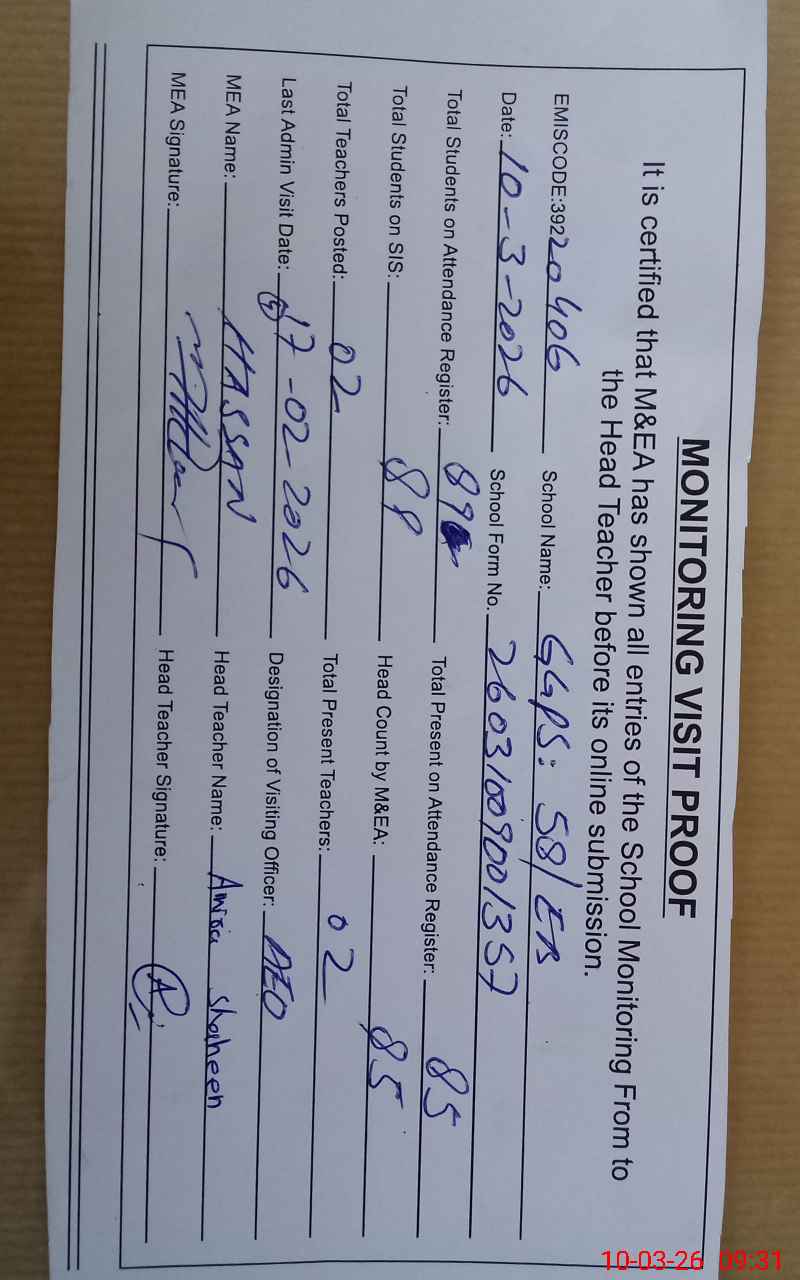 MONITORING VISIT PROOF
It is certified that M&EA has shown all entries of the School Monitoring From to
the Head Teacher before its online submission.
EMISCODE:39220406 School Name: GGPS: 58/EB
Date: 10-3-2026 School Form No. 26031009001357
Total Students on Attendance Register: 89 Total Present on Attendance Register: 85
Total Students on SIS: 89 Head Count by M&EA: 85
Total Teachers Posted: 02 Total Present Teachers: 02
Last Admin Visit Date: 17-02-2026 Designation of Visiting Officer: AEO
MEA Name: HASSAN Head Teacher Name: Shaheen
MEA Signature: Head Teacher Signature:
10-03-26 09:31